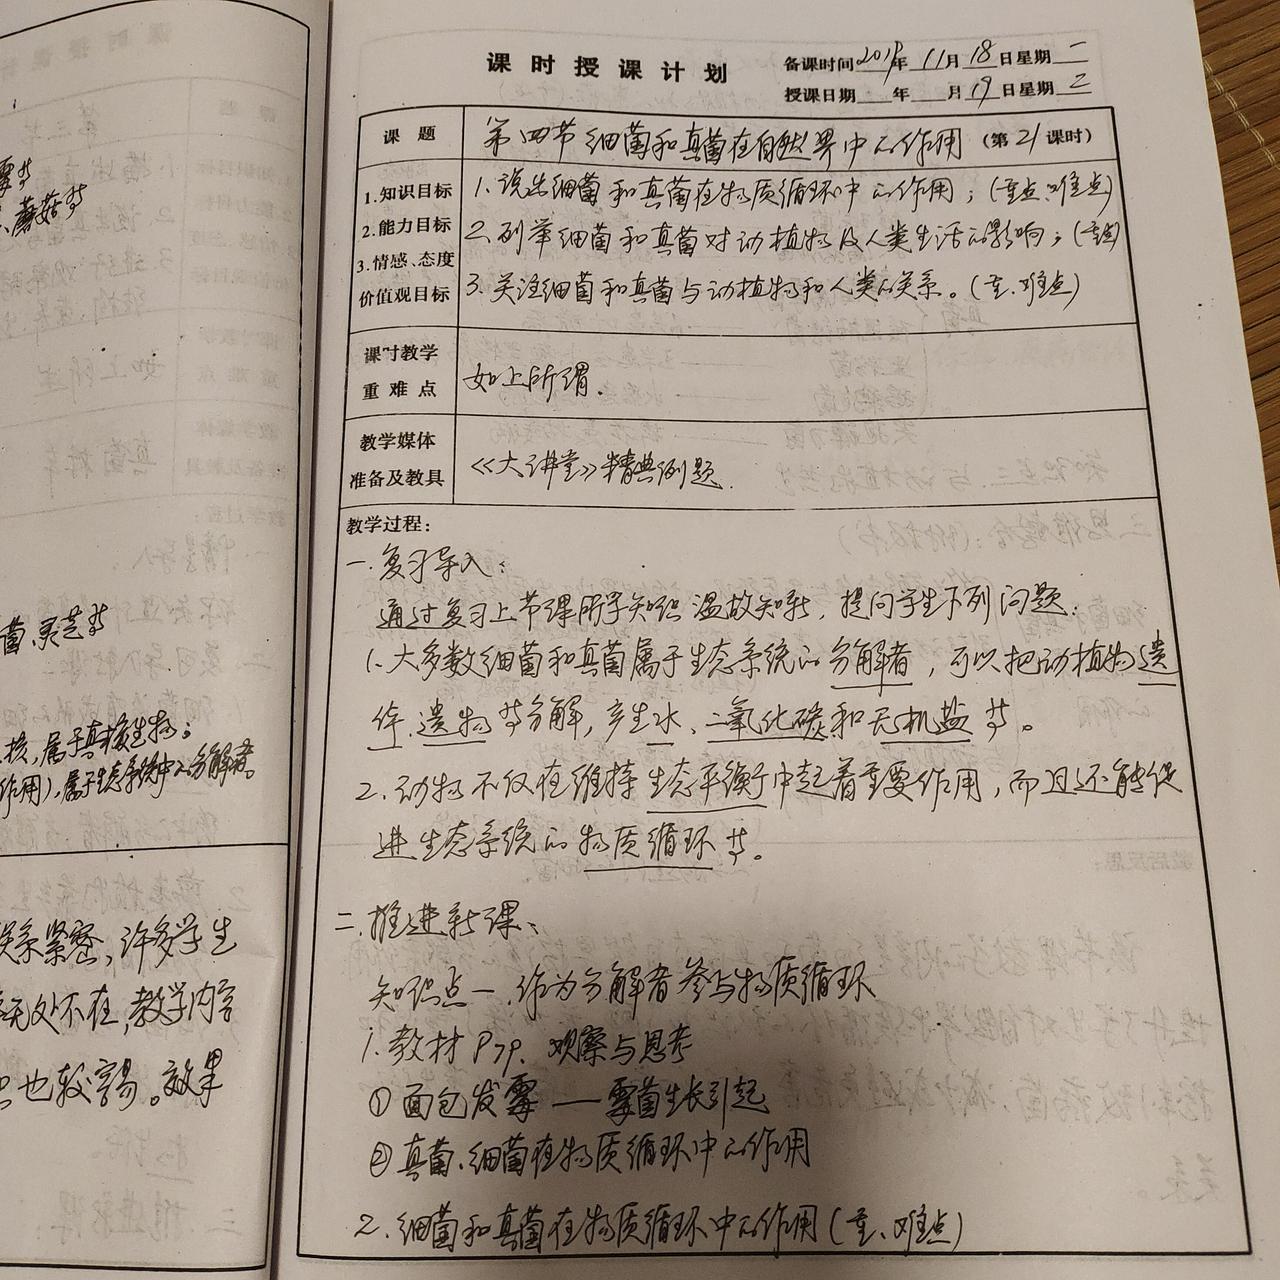 霉等
、蘑菇等
菌、灵芝等
核,属于真核生物;
作用),属于生态系统中的分解者。
关系紧密,许多学生
无处不在,教学内容
也较容易。效果
课时授课计划
备课时间2019年11月18日星期一
授课日期 年 月19日星期2
课题 第四节细菌和真菌在自然界中的作用 (第21课时)
1.知识目标
2.能力目标
3.情感、态度
价值观目标
1.说出细菌和真菌在物质循环中的作用;(重点、难点)
2.列举细菌和真菌对动植物及人类生活的影响;(重点)
3.关注细菌和真菌与动植物和人类的关系。(重、难点)
课时教学
重难点
如上所谓.
教学媒体
准备及教具
《大讲堂》精典例题.
教学过程:
一.复习导入:
通过复习上节课所学知识温故知新,提问学生下列问题:
1.大多数细菌和真菌属于生态系统的分解者,可以把动植物遗
体、遗物等分解,产生水、二氧化碳和无机盐等。
2.动物不仅在维持生态平衡中起着重要作用,而且还能促
进生态系统的物质循环等。
二.推进新课:
知识点一.作为分解者参与物质循环
1.教材P79.观察与思考
①面包发霉——霉菌生长引起
②真菌、细菌在物质循环中的作用
2.细菌和真菌在物质循环中的作用(重、难点)